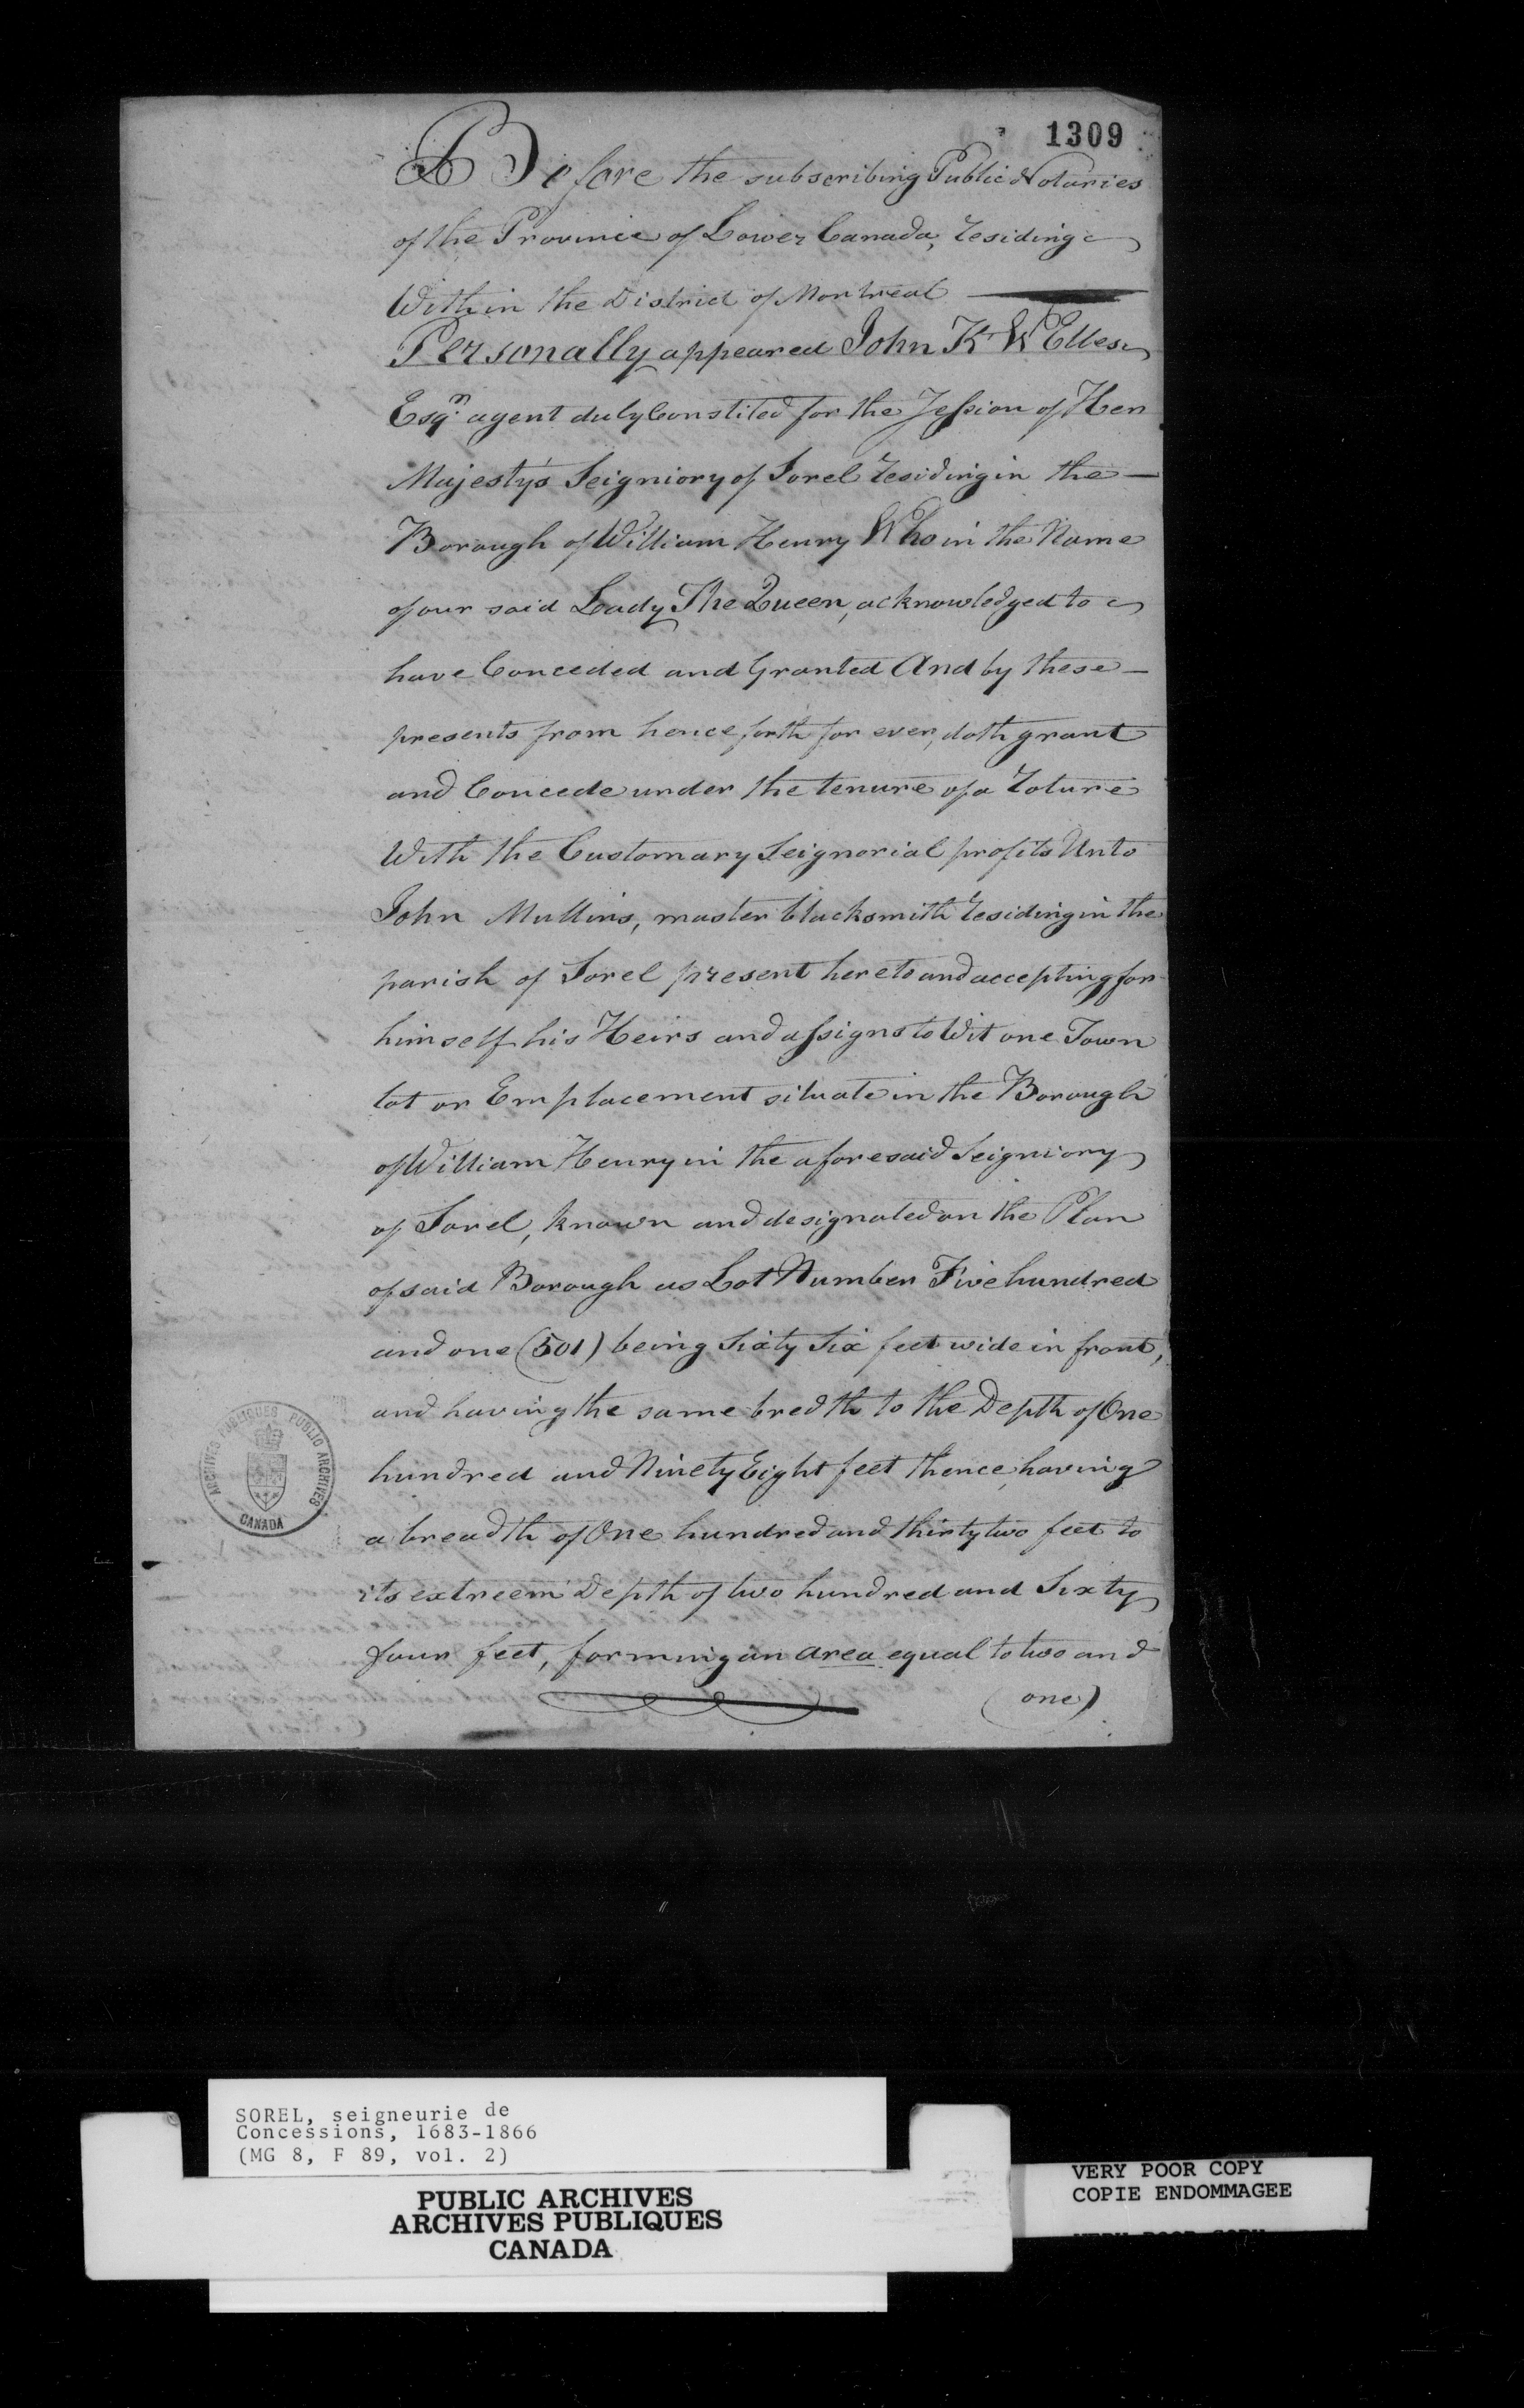 1309
Before the subscribing Public Notaries
of the Province of Lower Canada, residing
Within the District of Montreal
Personally appeared John K Welles
Esqr. agent duly Constited for the Jession of Her
Majesty's Seigniory of Sorel residing in the
Borough of William Henry Who in the Name
of our said Lady The Queen, acknowledged to
have Conceded and Granted And by these
presents from hence forth for ever, doth grant
and Concede under the tenure of a roture
With the Customary Seignorial profits Unto
John Mullins, master blacksmith residing in the
parish of Sorel present hereto and accepting for
himself his Heirs and assigns to Wit one Town
lot or Emplacement situate in the Borough
of William Henry in the aforesaid Seigniory
of Sorel, known and designated on the Plan
of said Borough as Lot Number Five hundred
and one (501) being Sixty Six feet wide in front,
and having the same bredth to the Depth of One
hundred and Ninety Eight feet thence having
a breadth of One hundred and thirty two feet to
its extreem Depth of two hundred and Sixty
four feet, forming an area equal to two and
(one)
ARCHIVES PUBLIQUES PUBLIC ARCHIVES
CANADA
SOREL, seigneurie de
Concessions, 1683-1866
(MG 8, F 89, vol. 2)
PUBLIC ARCHIVES
ARCHIVES PUBLIQUES
CANADA
VERY POOR COPY
COPIE ENDOMMAGEE
VERY POOR COPY